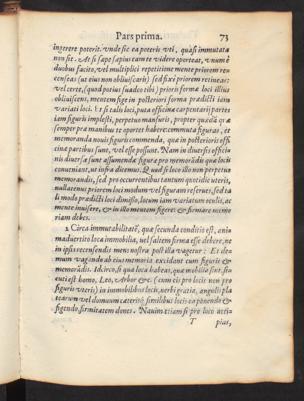 Pars prima. 73
ingerere poterit. vnde sic ea poteris vti, quasi immutata
non sit. At si sæpe sæpius eam te videre oporteat, vnum è
duobus facito, vel multiplici repetitione mentè priorem re
censeas (ut eius non obliuiscaris) sed fixè priorem retineas:
vel certè, (quod potius suadeo tibi) prioris formæ loci illius
obliuiscens, mentem fige in posteriori forma prædicti iam
variati loci. vt si talis loci, puta officinæ carpentarij partes
iam figuris implesti, perpetuo mansuris, propter quædã quæ
semper præ manibus te oportet habere: commuta figuras, et
memoranda nouis figuris commenda, quæ in posterioris offi
cinæ partibus sunt, vel esse possunt. Nam in diuersis offici-
nis diuersæ sunt assumendæ figuræ pro memorãdis quæ locis
conueniant, ut infra dicemus. Quod si loco illo non perpetuo
memorandis, sed pro occurrentibus tantum quotidie vteris,
nullatenus priorem loci modum vel figuram reserues, sed ta
li modo prædicti loci dimisso, locum iam variatum oculis, ac
mente inuisere, & in illo mentem figere & firmare memo
riam debes.
2 Circa immutabilitatẽ, quæ secunda conditio est, ani-
maduertito loca immobilia, uel saltem firma esse debere, ne
in ipsis recensendis mens nostra post illa vagetur: Et dou
mum vagando ab eius memoria excidant cum figuris &
memorãdis. Idcirco, si qua loca habeas, quæ mobilia sint, si-
cuti est homo, Leo, Arbor &c. (cum eis pro locis non pro
figuris vteris) in immobilibus locis, verbi gratia, angulis pla
tearum vel domuum cæterisq; similibus locis ea ponendo &
figendo, firmitatem dones. Nauim etiam si pro loco acci-
T pias,